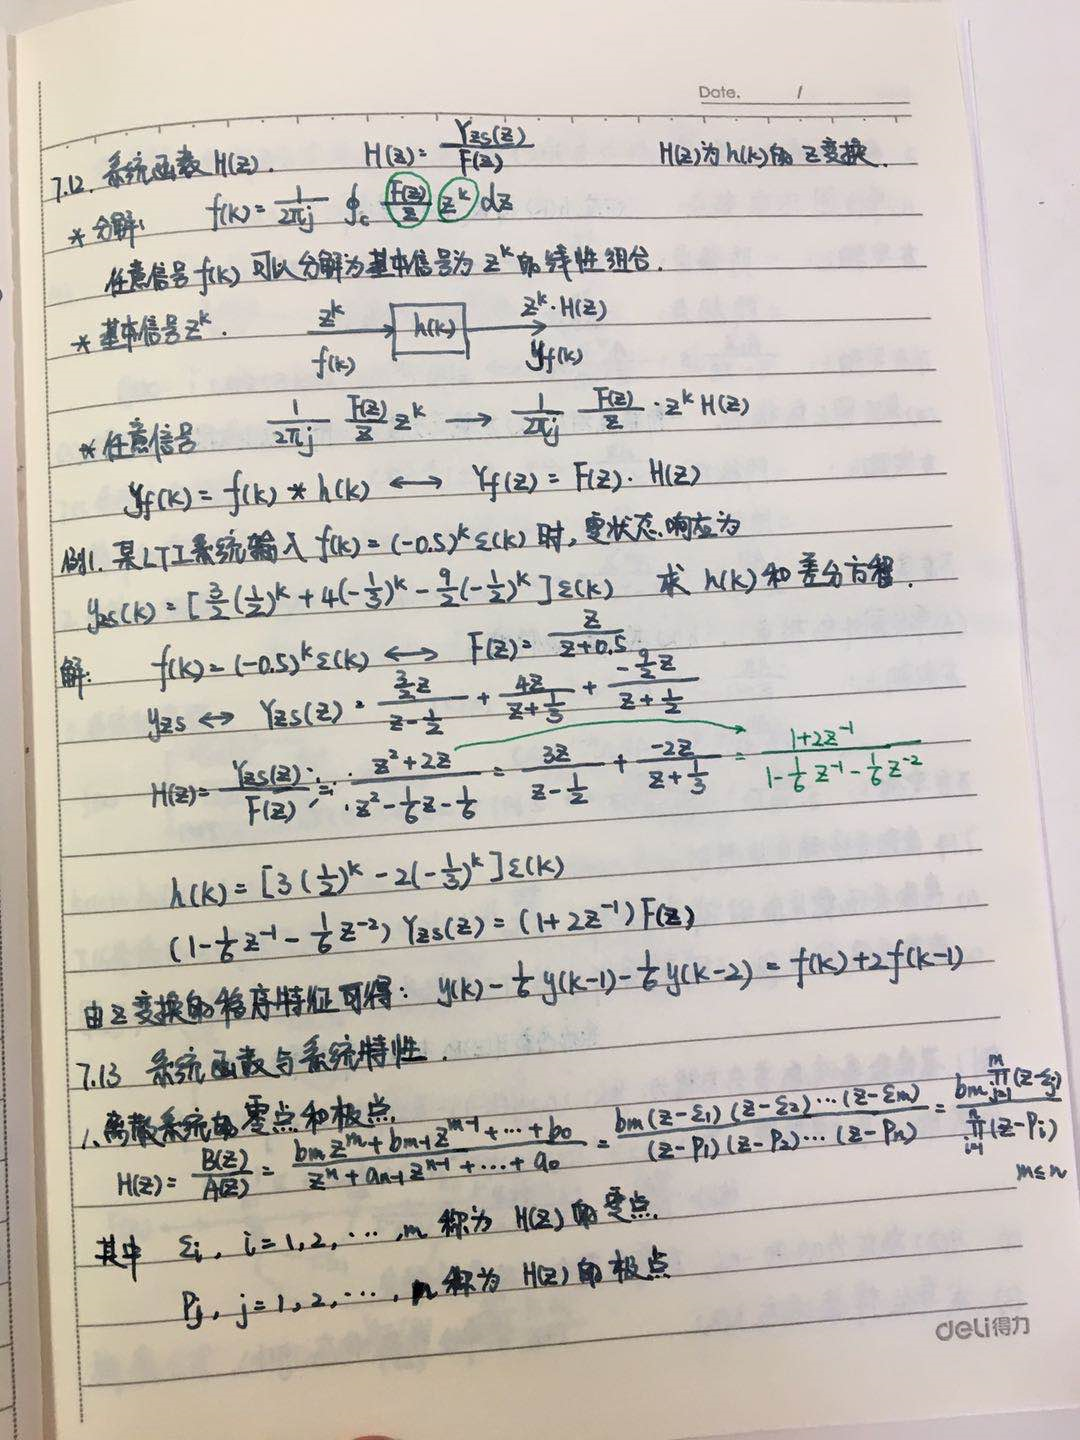 Date. /
7.12. 系统函数H(z). H(z)=Yzs(z)/F(z) H(z)为h(k)的z变换.
* 分解: f(k)=1/2πj ∮c F(z)/z z^k dz
任意信号f(k)可以分解为基本信号为z^k的线性组合.
* 基本信号z^k. z^k h(k) z^k·H(z)
f(k) yf(k)
* 任意信号 1/2πj F(z)/z z^k → 1/2πj F(z)/z · z^k H(z)
yf(k)=f(k)*h(k) ↔ Yf(z)=F(z)·H(z)
例1. 某LTI系统输入f(k)=(-0.5)^k ε(k)时,零状态响应为
yzs(k)=[3/2(1/2)^k+4(-1/3)^k-9/2(-1/2)^k]ε(k) 求h(k)和差分方程.
解: f(k)=(-0.5)^k ε(k) ↔ F(z)=z/z+0.5
yzs ↔ Yzs(z)=3/2z/z-1/2 + 4z/z+1/3 + -9/2z/z+1/2
H(z)=Yzs(z)/F(z)=z²+2z/z²-1/6z-1/6 = 3z/z-1/2 + -2z/z+1/3 = 1+2z^-1/1-1/6z^-1-1/6z^-2
h(k)=[3(1/2)^k-2(-1/3)^k]ε(k)
(1-1/6z^-1-1/6z^-2)Yzs(z)=(1+2z^-1)F(z)
由z变换的移序特征可得: y(k)-1/6y(k-1)-1/6y(k-2)=f(k)+2f(k-1)
7.13 系统函数与系统特性.
1. 离散系统的零点和极点.
H(z)=B(z)/A(z)=bm z^m+bm-1 z^m-1+···+b0/z^n+an-1 z^n-1+···+a0 = bm(z-ξ1)(z-ξ2)···(z-ξm)/(z-p1)(z-p2)···(z-pn) = bm m∏j=1(z-ξj)/n∏i=1(z-pi)
m≤n
其中 ξi, i=1,2,···,m 称为H(z)的零点.
pj, j=1,2,···,n 称为H(z)的极点
deli得力